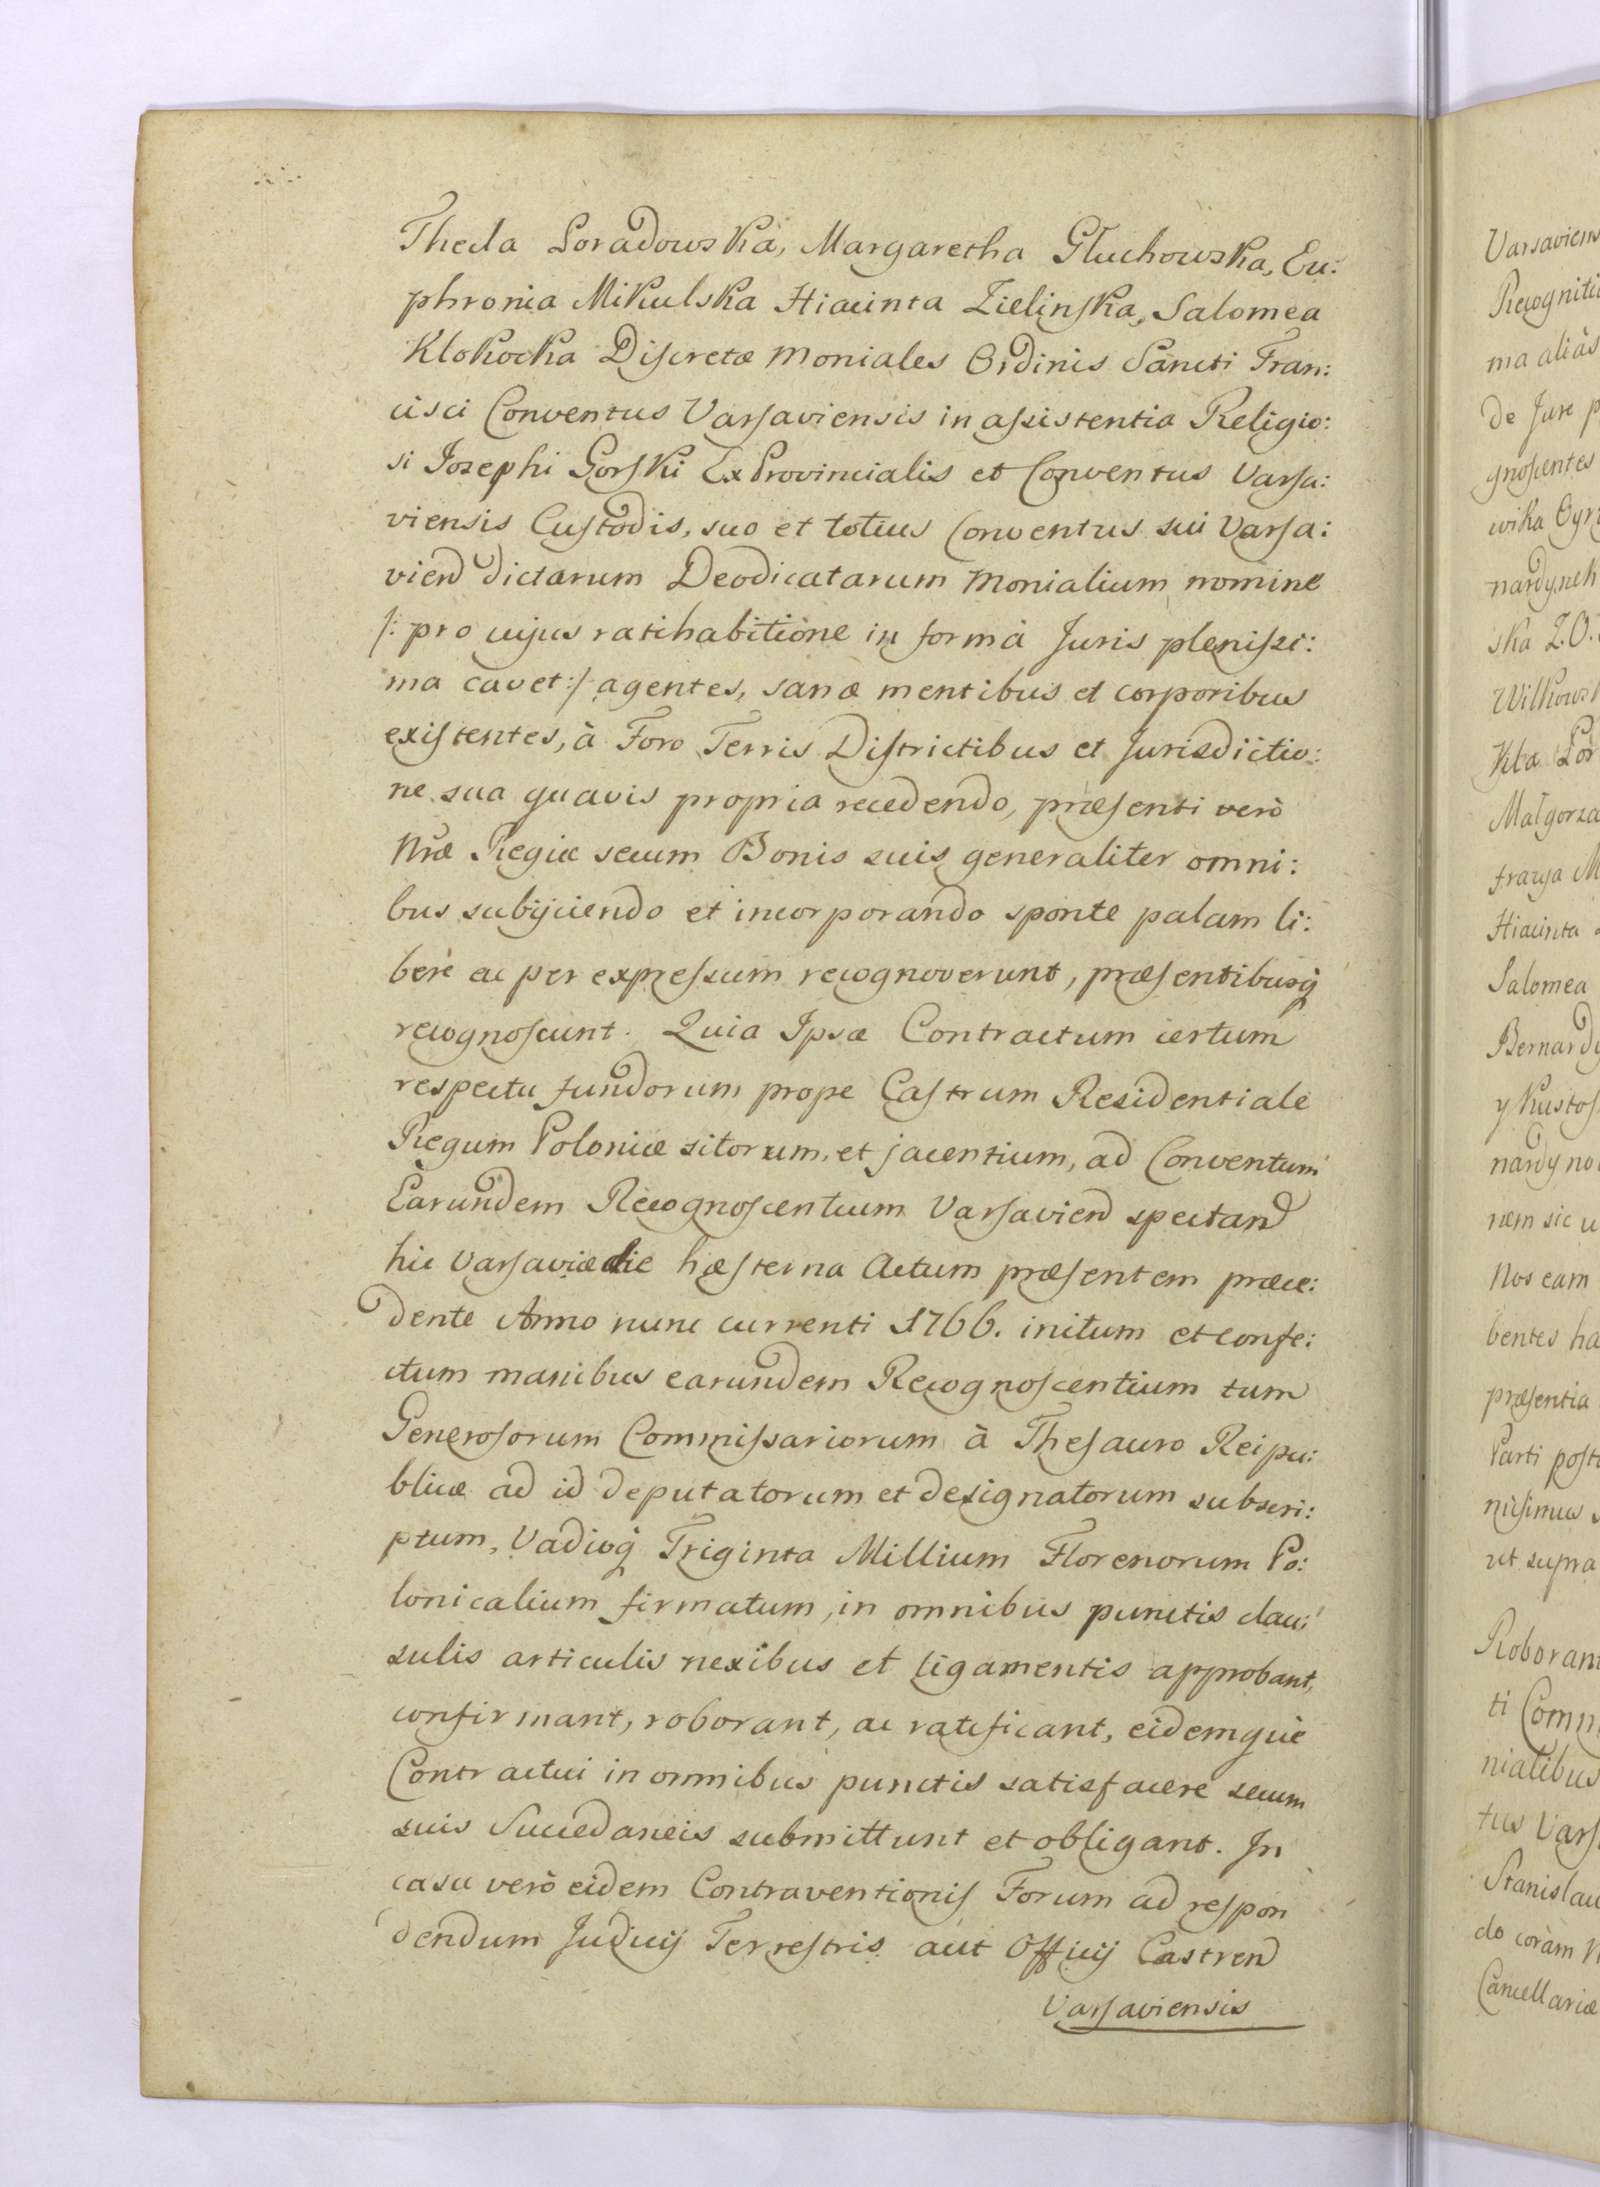 Thecla Poradowska, Margaretha Głuchowska, Eu:
phronia Mikulska Hiacinta Zielinska, Salomea
Klokocka Discretæ Moniales Ordinis Sancti Fran:
cisci Conventus Varsaviensis in assistentia Religio:
si Josephi Gorski ExProvincialis et Conventus Varsa:
viensis Custodis, suo et totius Conventus sui Varsa:
vien dictarum Deodicatarum Monialium nomine
/: pro cujus ratihabitione in formâ Juris plenissi:
ma cavet :/ agentes, sanæ mentibus et corporibus
existentes, à Foro Terris Districtibus et Jurisdictio:
ne sua quavis propria recedendo, præsenti verò
Nræ Regiæ secum Bonis suis generaliter omni:
bus subijciendo et incorporando sponte palam li:
berè ac per expressum recognoverunt, præsentibusq̃
recognoscunt. Quia Ipsæ Contractum certum
respectu fundorum prope Castrum Residentiale
Regum Poloniæ sitorum, et jacentium, ad Conventum
Earundem Recognoscentium Varsavien spectan
hic Varsaviæ die hæsterna Actum præsentem præce:
dente Anno nunc currenti 1766. initum et confe:
ctum manibus earundem Recognoscentium tum
Generosorum Commissariorum à Thesauro Reipu:
blicæ ad id deputatorum et designatorum subscri:
ptum, Vadioq̃ Triginta Millium Florenorum Po:
lonicalium firmatum, in omnibus punctis clau:
sulis articulis nexibus et ligamentis approbant,
confirmant, roborant, ac ratificant, eidemque
Contractui in omnibus punctis satisfacere secum
suis Succedaneis submittunt et obligant. In
casu verò eidem Contraventionis Forum ad respon
dendum Judicij Terrestris aut Officij Castren
Varsaviensis
Varsaviens
Recogniti
ma aliàs
de Jure p
gnoscentes
wika Cyr
nardynek
ska Z.O.
Wilkows
kla Por
Małgorza
frazya M
Hiacinta
Salomea
Bernardy
y Kustos
nardyno
nem sic u
Nos eam
bentes ha
præsentia
Parti post
nisimus
ut supra
Roboran
ti Comm
nialibus
tus Vars
Stanislau
do coràm N
Cancellariæ